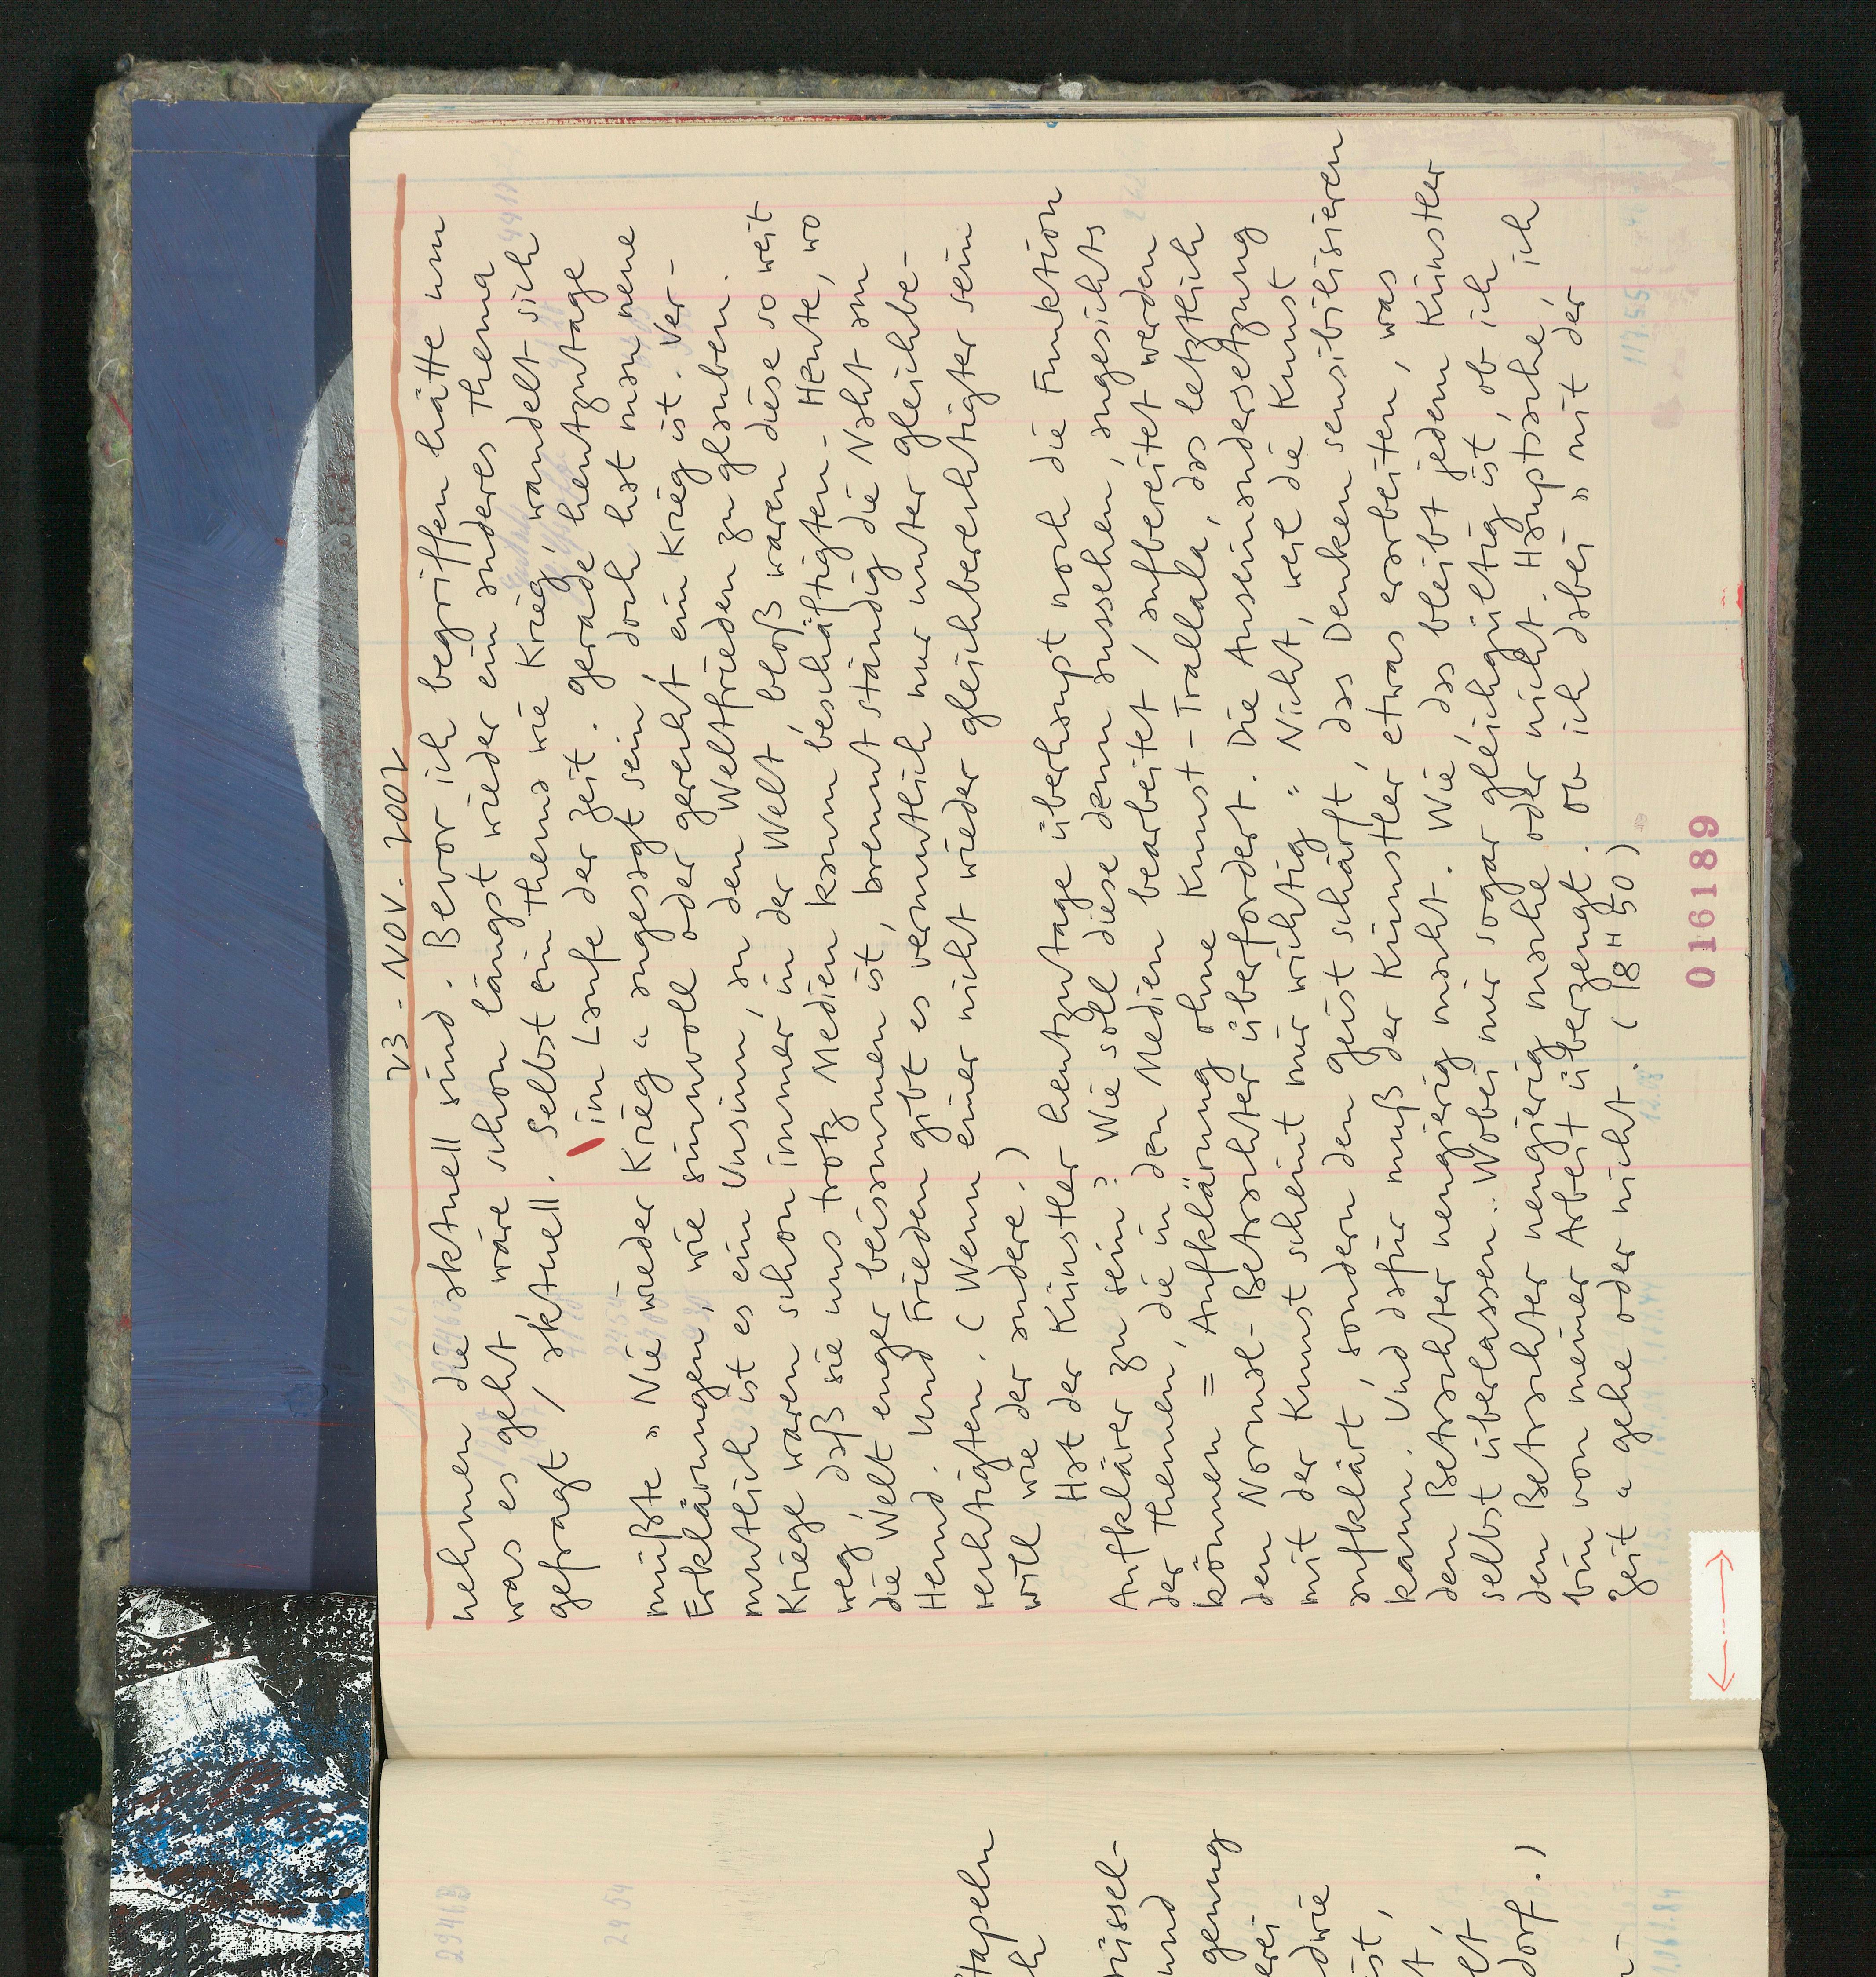 23. NOV. 2002
nehmen die aktuell sind. Bevor ich begriffen hätte um
was es geht, wäre schon längst wieder ein anderes Thema
gefragt / aktuell. Selbst ein Thema wie Krieg, wandelt sich
im Laufe der Zeit. Gerade heutzutage
müßte » Nie wieder Krieg « angesagt sein, doch hat man neue
Erklärungen, wie sinnvoll oder gerecht ein Krieg ist. Ver-
mutlich ist es ein Unsinn, an den Weltfrieden zu glauben.
Kriege waren schon immer in der Welt, bloß waren diese so weit
weg, daß sie uns trotz Medien kaum beschäftigten. Heute, wo
die Welt enger beisammen ist, brennt ständig die Naht am
Hemd. Und Frieden gibt es vermutlich nur unter gleichbe-
rechtigten. (Wenn einer nicht wieder gleichberechtigter sein
will wie der andere.)
Hat der Künstler heutzutage überhaupt noch die Funktion
Aufklärer zu sein? Wie soll diese denn aussehen, angesichts
der Themen, die in den Medien bearbeitet / aufbereitet werden
können = Aufklärung ohne Kunst-Trallala, das letztlich
den Normal-Betrachter überfordert. Die Auseinandersetzung
mit der Kunst scheint mir wichtig: Nicht, weil die Kunst
aufklärt, sondern den Geist schärft, das Denken sensibilisieren
kann. Und dafür muß der Künstler etwas erarbeiten, was
den Betrachter neugierig macht. Wie, das bleibt jedem Künstler
selbst überlassen. Wobei mir sogar gleichgültig ist, ob ich
den Betrachter neugierig mache oder nicht. Hauptsache, ich
bin von meiner Arbeit überzeugt. Ob ich dabei » mit der
Zeit « gehe oder nicht. (18 H 50)
016189
tapeln
üssel-
und
genug
dorf.)